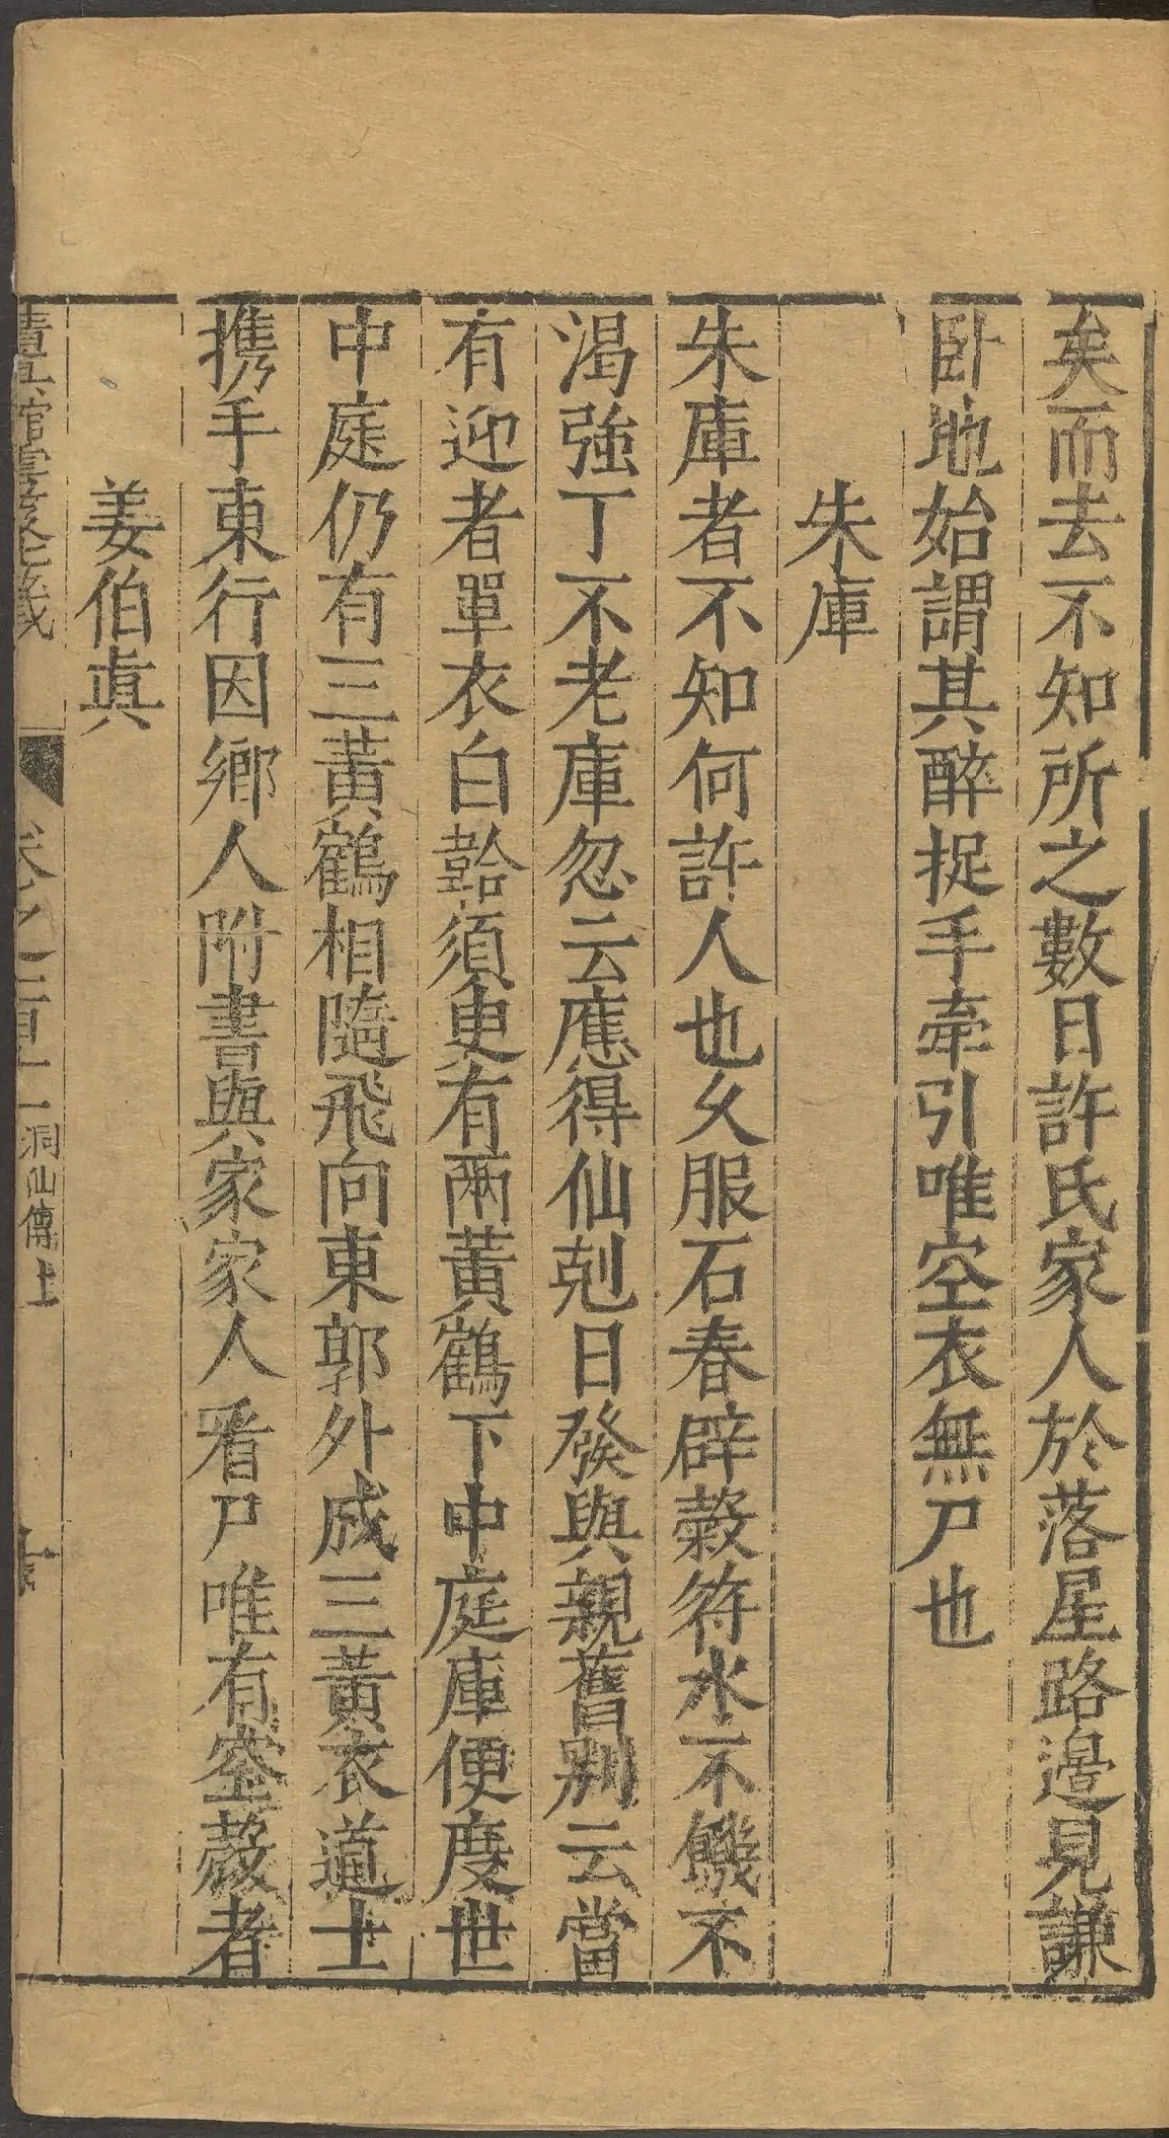 矣而去不知所之數日許氏家人於落星路邉見謙
卧地始謂其醉捉手牽引唯空衣無尸也
朱庫
朱庫者不知何許人也乆服石春辟榖符水不饑不
渴強丁不老庫忽云應得仙剋日發與親舊别云當
有迎者單衣白韐須臾有兩黃鶴下中庭庫便度世
中庭仍有三黃鶴相隨飛向東郭外成三黃衣道士
携手東行因鄉人附書與家家人看尸唯有空殼者
姜伯真
卷之一百十一 洞仙傳上